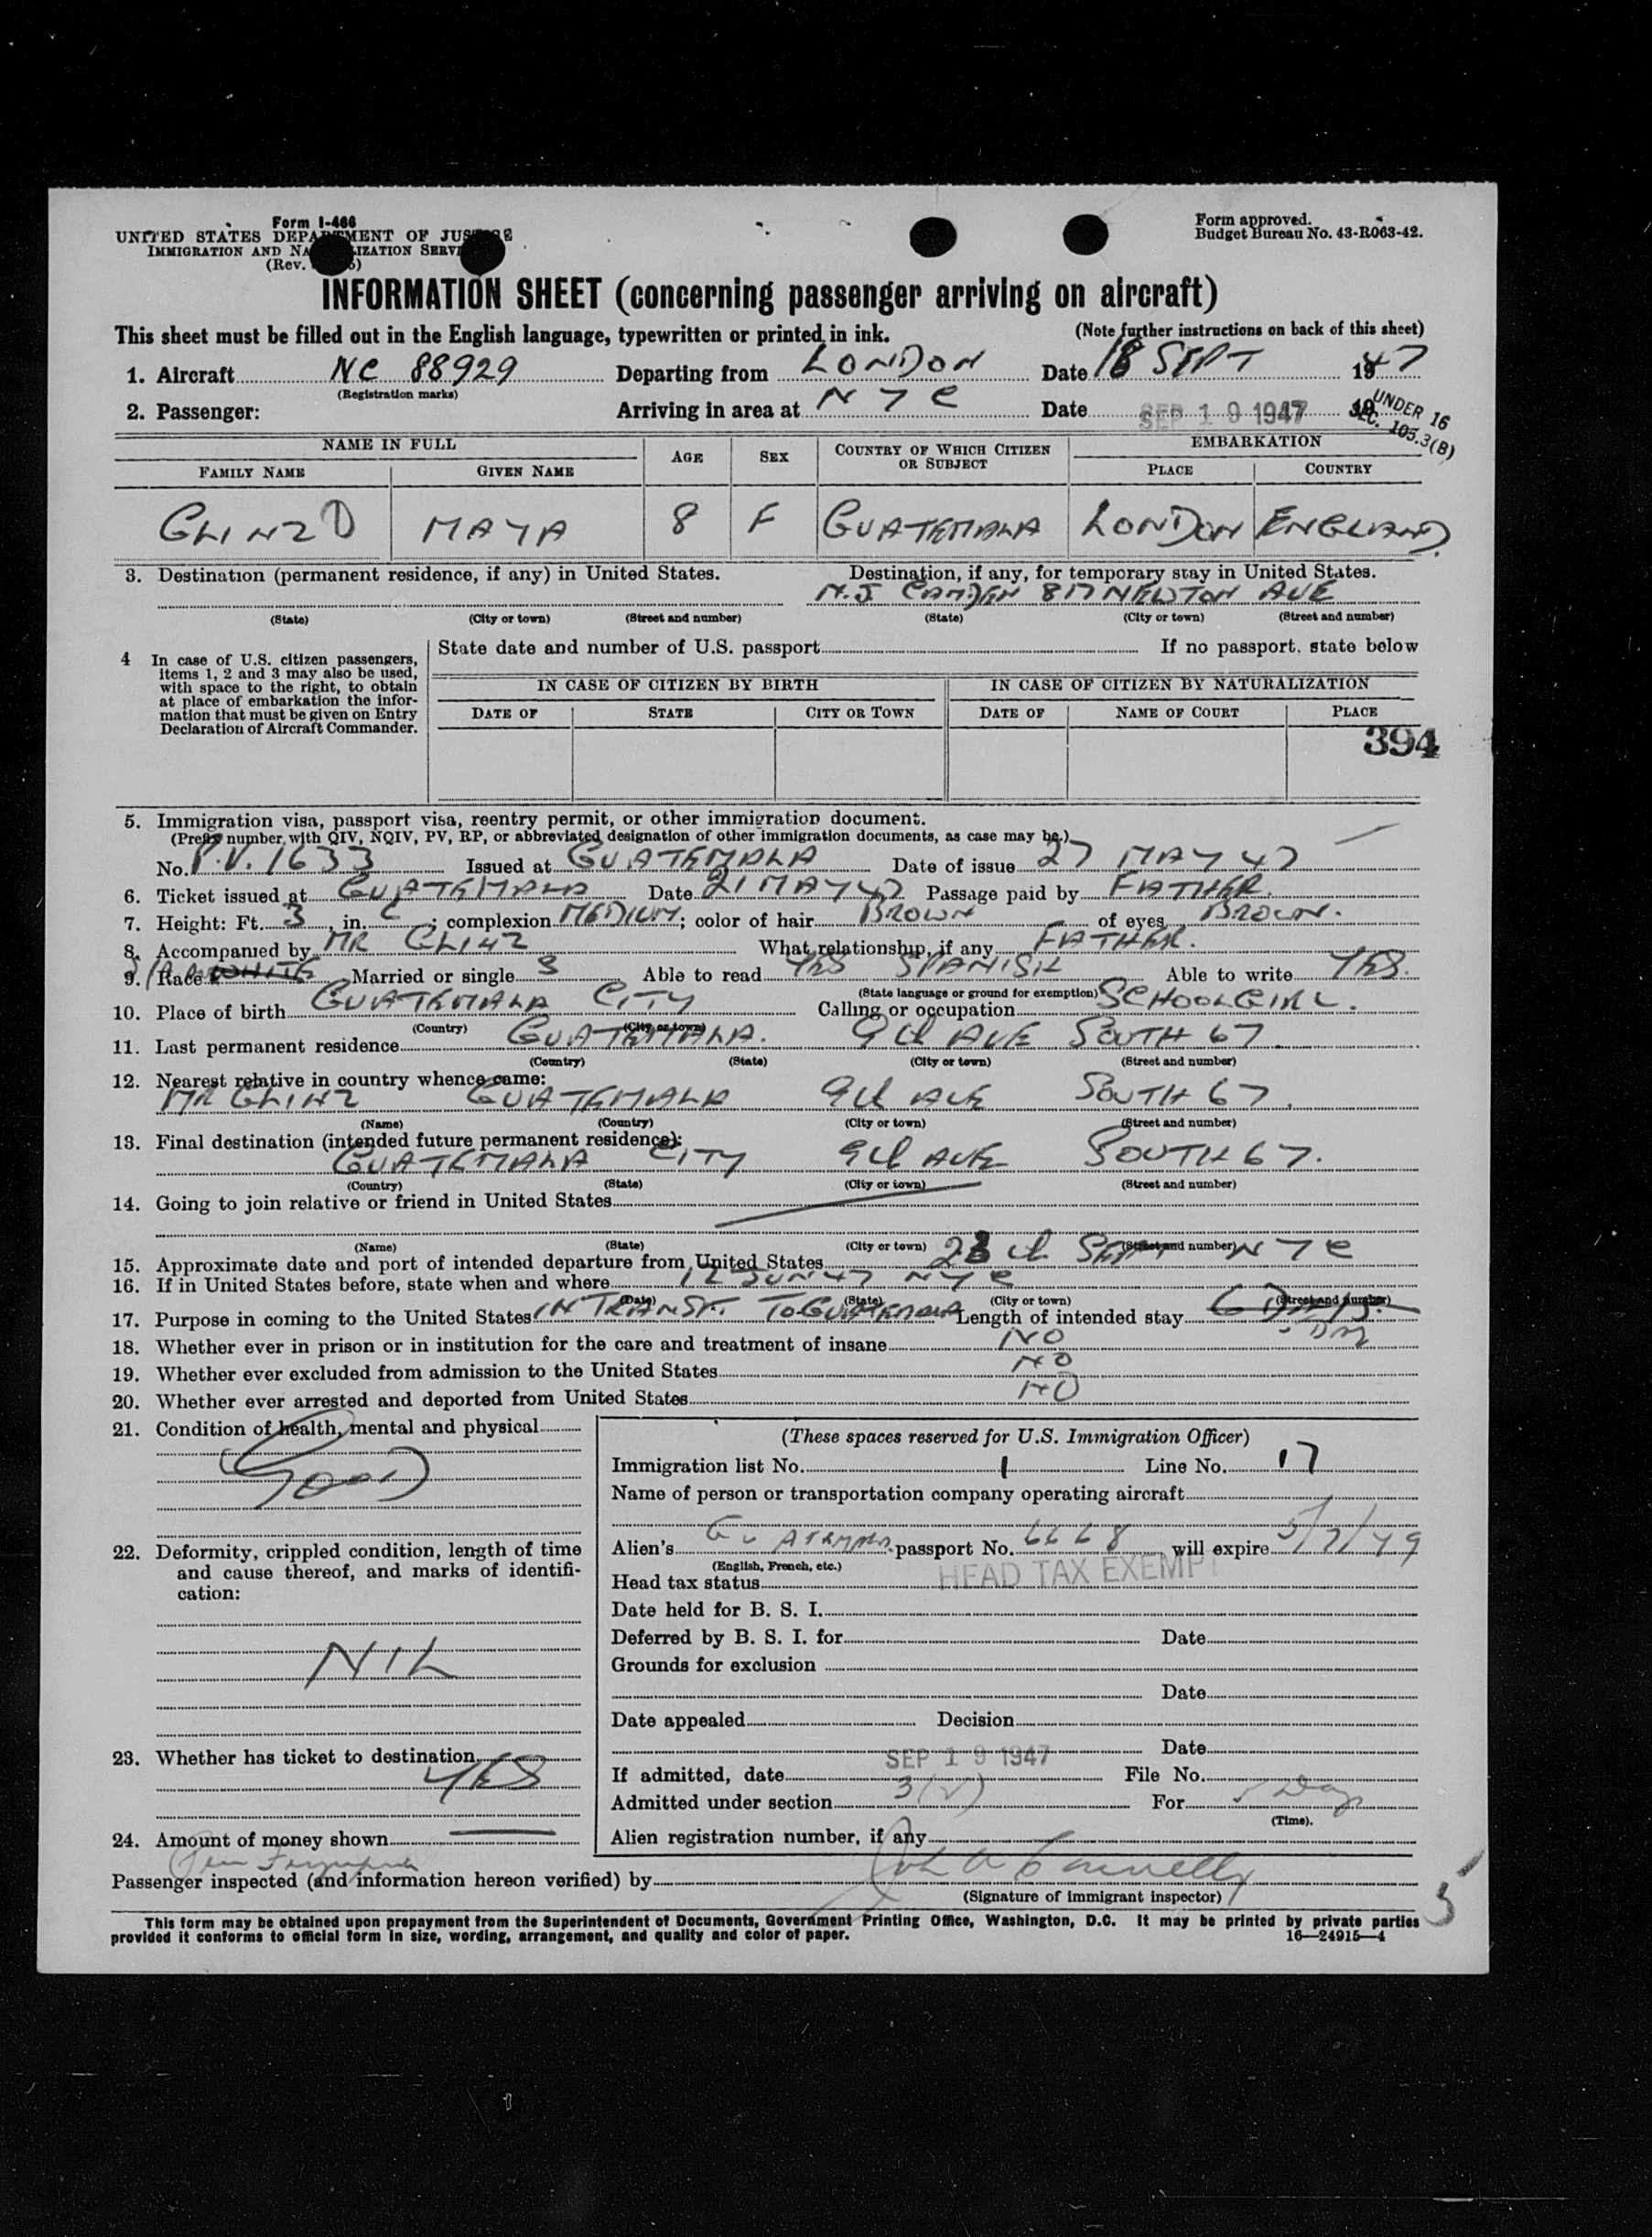 Form I-466
UNITED STATES DEPARTMENT OF JUSTICE
IMMIGRATION AND NATURALIZATION SERVICE
(Rev.
Form approved.
Budget Bureau No. 43-R063-42.
INFORMATION SHEET (concerning passenger arriving on aircraft)
This sheet must be filled out in the English language, typewritten or printed in ink. (Note further instructions on back of this sheet)
1. Aircraft NC 88929 Departing from LONDON Date 18 SEPT 1947
(Registration marks)
2. Passenger: Arriving in area at NYC Date SEP 19 1947 19
UNDER 16
SEC. 105.3(B)
NAME IN FULL AGE SEX COUNTRY OF WHICH CITIZEN OR SUBJECT EMBARKATION
FAMILY NAME GIVEN NAME PLACE COUNTRY
GLINZ MAYA 8 F GUATEMALA LONDON ENGLAND.
3. Destination (permanent residence, if any) in United States. Destination, if any, for temporary stay in United States.
N.J. CAMDEN 817 NEWTON AVE
(State) (City or town) (Street and number) (State) (City or town) (Street and number)
4 In case of U.S. citizen passengers, items 1, 2 and 3 may also be used, with space to the right, to obtain at place of embarkation the information that must be given on Entry Declaration of Aircraft Commander.
State date and number of U.S. passport If no passport, state below
IN CASE OF CITIZEN BY BIRTH IN CASE OF CITIZEN BY NATURALIZATION
DATE OF STATE CITY OR TOWN DATE OF NAME OF COURT PLACE
394
5. Immigration visa, passport visa, reentry permit, or other immigration document.
(Prefix number with QIV, NQIV, PV, RP, or abbreviated designation of other immigration documents, as case may be.)
No. P.V. 1633 Issued at GUATEMALA Date of issue 27 MAY 47
6. Ticket issued at GUATEMALA Date 21 MAY 47 Passage paid by FATHER.
7. Height: Ft. 3, in. ; complexion MEDIUM; color of hair BROWN of eyes BROWN.
8. Accompanied by MR GLINZ What relationship, if any FATHER.
9. Race WHITE Married or single S Able to read YES SPANISH Able to write YES.
(State language or ground for exemption)
10. Place of birth GUATEMALA CITY Calling or occupation SCHOOLGIRL.
(Country) (City or town)
11. Last permanent residence GUATEMALA. 9th AVE SOUTH 67.
(Country) (State) (City or town) (Street and number)
12. Nearest relative in country whence came:
MR GLINZ GUATEMALA 9th AVE SOUTH 67.
(Name) (Country) (City or town) (Street and number)
13. Final destination (intended future permanent residence):
GUATEMALA CITY 9th AVE SOUTH 67.
(Country) (State) (City or town) (Street and number)
14. Going to join relative or friend in United States
(Name) (State) (City or town) (Street and number)
15. Approximate date and port of intended departure from United States 23 SEPT NYC
16. If in United States before, state when and where 12 JUN 47 NYC
(Date) (State) (City or town) (Street and number)
17. Purpose in coming to the United States IN TRANSIT TO GUATEMALA Length of intended stay 6 DAYS.
18. Whether ever in prison or in institution for the care and treatment of insane NO
19. Whether ever excluded from admission to the United States NO
20. Whether ever arrested and deported from United States NO
21. Condition of health, mental and physical
GOOD
22. Deformity, crippled condition, length of time and cause thereof, and marks of identification:
NIL
23. Whether has ticket to destination
YES
24. Amount of money shown
(These spaces reserved for U.S. Immigration Officer)
Immigration list No. 1 Line No. 17
Name of person or transportation company operating aircraft
Alien's GUATEMALA passport No. 6668 will expire 5/7/49
(English, French, etc.)
Head tax status HEAD TAX EXEMPT
Date held for B. S. I.
Deferred by B. S. I. for Date
Grounds for exclusion
Date
Date appealed Decision
Date
If admitted, date SEP 19 1947 File No.
Admitted under section 3(2) For Day
(Time).
Alien registration number, if any
Passenger inspected (and information hereon verified) by John A Connelly
(Signature of immigrant inspector)
5
This form may be obtained upon prepayment from the Superintendent of Documents, Government Printing Office, Washington, D.C. It may be printed by private parties
provided it conforms to official form in size, wording, arrangement, and quality and color of paper. 16—24915—4